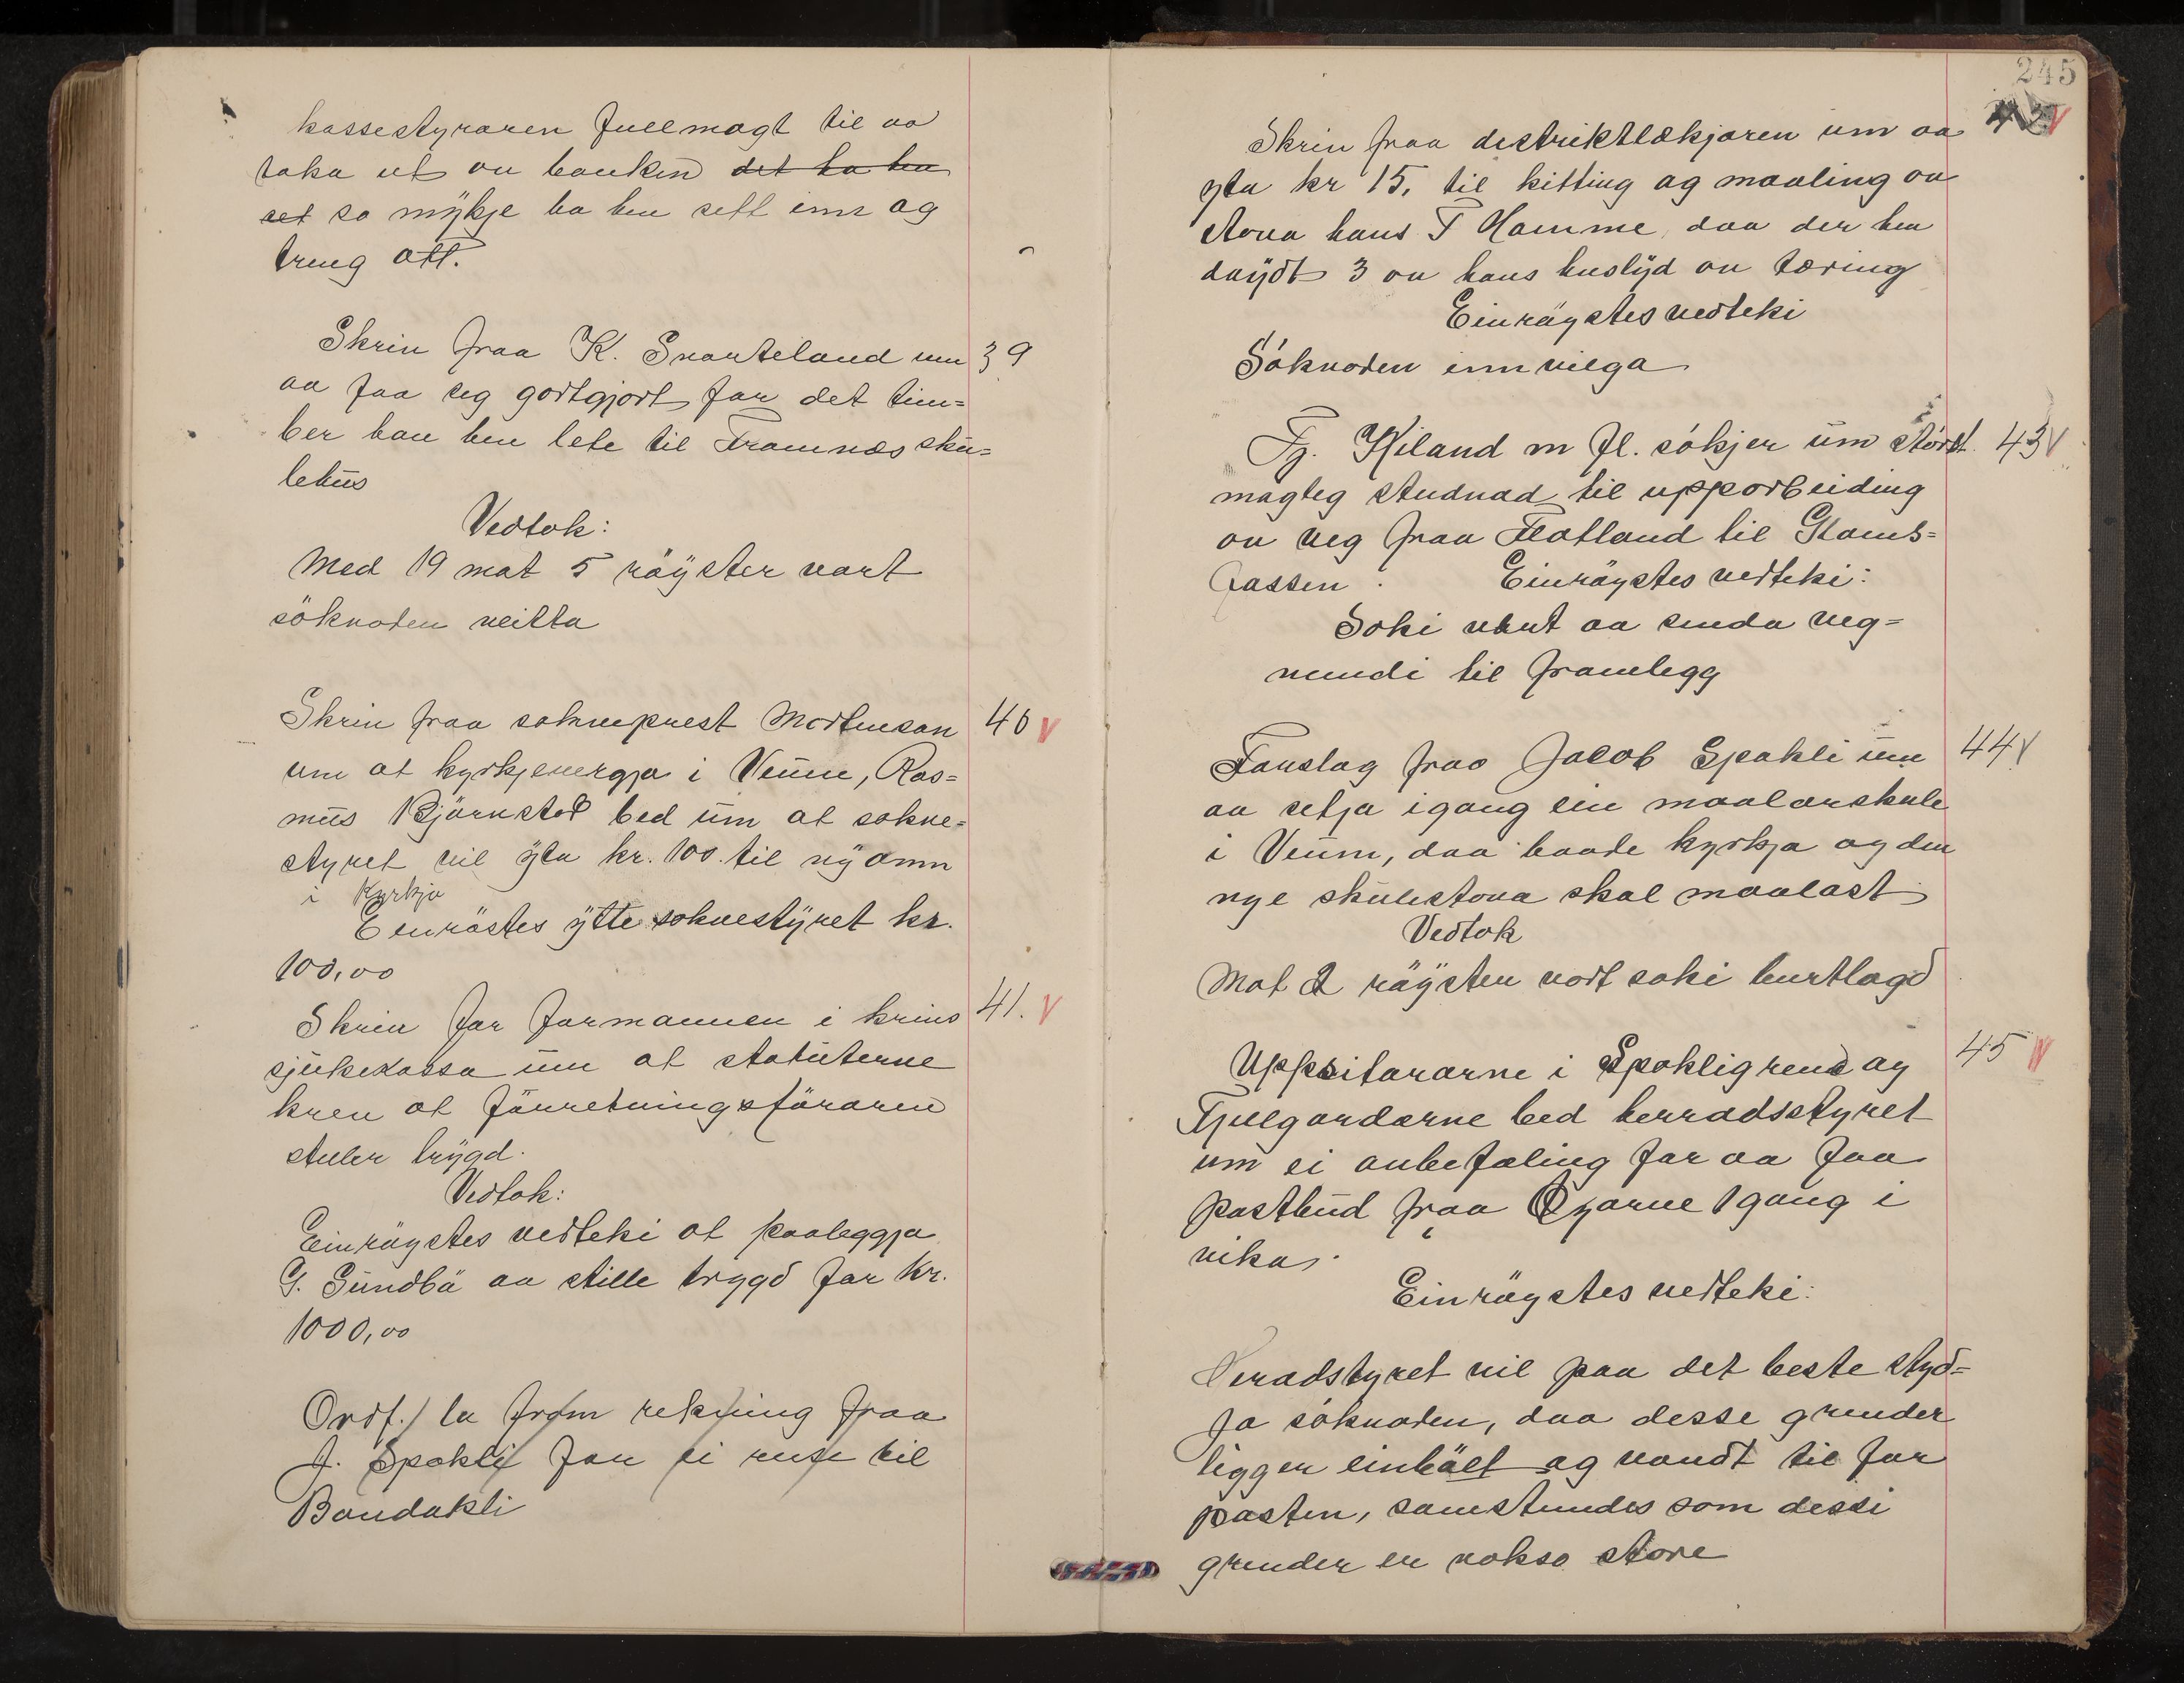 kassestyraren fullmagt til aa
taka ut av banken det ha hev
set so mykje ha hev sett inn og
treng att.
Skriv fraa K. Svarteland um 39
aa faa seg godtgjort for det tim=
ber han hev lete til Framnæs sku=
lehus
Vedtok:
Med 19 mot 5 röyster vart
söknaden veitta
Skriv fraa sokneprest Mortenson 40 V
um at kyrkjeverja i Veum, Ras=
mus Björnstad bed um at sokne=
styret vil yta kr. 100. til ny omn
i Kyrkja
Einröstes ytte soknestyret kr.
100,00
Skriv for formannen i krins 41. V
sjukekassa um at statuterne
krev at forretningsföraren
steller trygd.
Vedtok:
Einröystes vedteki at paaleggja
G. Sundbö aa stille trygd for kr.
1000,00
Ordf. la fram rekning fraa
J. Spokli for ei reise til
Bandakli
245
Skriv fraa distriktlækjaren um aa 42 V
yta kr 15, til kitting og maaling av
stova hans T Hamme, daa der hev
döydt 3 av hans huslyd av tæring
Einröystes vedteki
Söknaden innvilga
Tj. Kiland m fl. sökjer um störst. 43 V
magleg studnad til upparbeiding
av veg fraa Flatland til Glams=
fassen. Einröystes vedteki:
Soki vart aa senda veg=
nemdi til framlegg
Forslag fraa Jacob Spokli um 44 V
aa setja igang ein maalarskule
i Veum, daa baade kyrkja og den
nye skulestova skal maalast
Vedtok
Mot 2 röyster vart saki burtlagd
Uppsitararne i Spokligrend og 45 V
Fjellgardarne bed herradsstyret
um ei anbefaling for aa faa
postbud fraa Öyarne 1 gang i
vika.
Einröystes vedteki:
Heradstyret vil paa det beste styd=
ja söknaden, daa desse grender
ligger einbölt og vandt til for
posten, samstundes som dessi
grender er vokso store